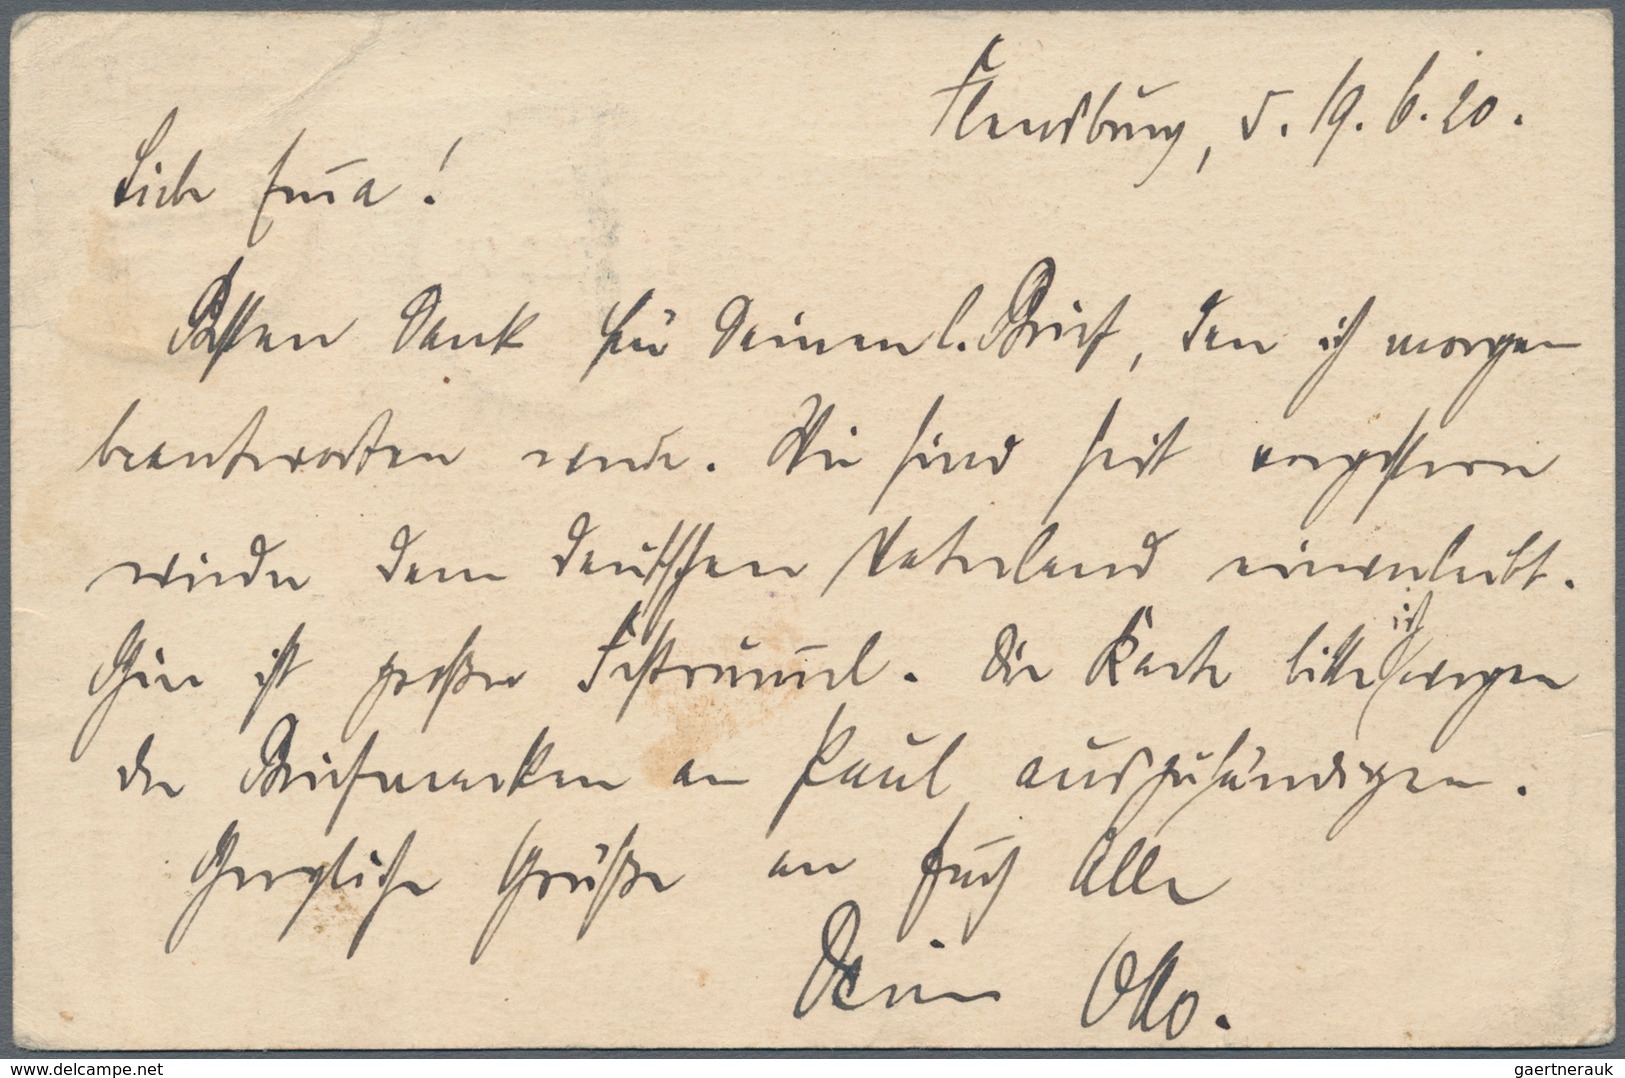 Flensburg, d. 19.6.20.
Liebe Erna!
Besten Dank für Deinen l. Brief, den ich morgen
beantworten werde. Wir sind seit vorgestern
wieder dem deutschen Vaterland einverleibt.
Hier ist großer Festrummel. Die Karte bitte ich wegen
der Briefmarken an Paul auszuhändigen.
Herzliche Grüße an Euch Alle
Dein Otto.
www.delcampe.net
gaertnerauk